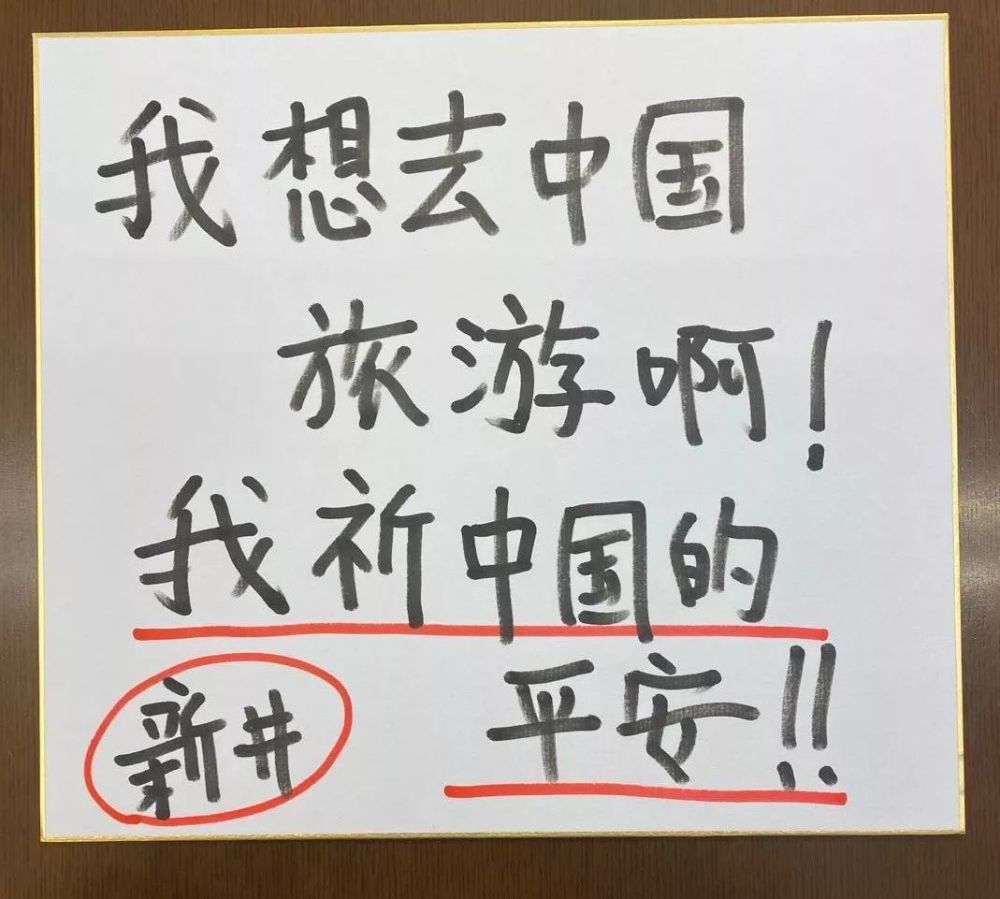 我想去中国
旅游啊!
我祈中国的
平安!!
新井